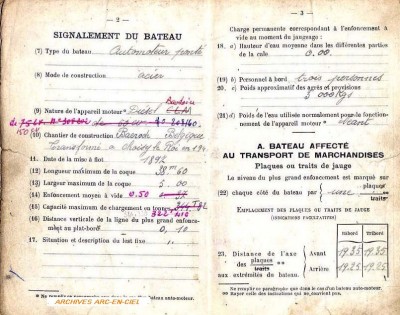 — 2 —
SIGNALEMENT DU BATEAU
(7) Type du bateau Automoteur ponté
(8) Mode de construction acier
(9) Nature de l'appareil moteur*
150
(10) Chantier de construction Belgique
Transformé à Choisy le Roi en 194
11. Date de la mise à flot 1892
(12) Longueur maximum de la coque 38m60
(13) Largeur maximum de la coque 5.00
(14) Enfoncement moyen à vide 0.50
(15) Capacité maximum de chargement en tonnes
322 T 410
(16) Distance verticale de la ligne du plus grand enfoncement au plat-bord 0,10
17. Situation et description du lest fixe "
ARCHIVES ARC-EN-CIEL
— 3 —
Charge permanente correspondant à l'enfoncement à
vide au moment du jaugeage :
18. a) Hauteur d'eau moyenne dans les différentes parties
de la cale 0.00
(19) b) Personnel à bord trois personnes
20. c) Poids approximatif des agrès et provisions
3 000 Kgs
(21) d) Poids de l'eau utilisée normalement pour le fonctionnement de l'appareil moteur*
A. BATEAU AFFECTÉ
AU TRANSPORT DE MARCHANDISES
Plaques ou traits de jauge
Le niveau du plus grand enfoncement est marqué sur
(22) chaque côté du bateau par une plaques
traits**
EMPLACEMENT DES PLAQUES OU TRAITS DE JAUGE
Bâbord Tribord
23. Distance de l'axe Avant 19.35 19.35
des plaques
traits **
aux extrémités du bateau. Arrière 19.25 19.25
* Ne remplir ce paragraphe que dans le cas d'un bateau auto-moteur.
** Rayer celle des indications qui ne convient pas.